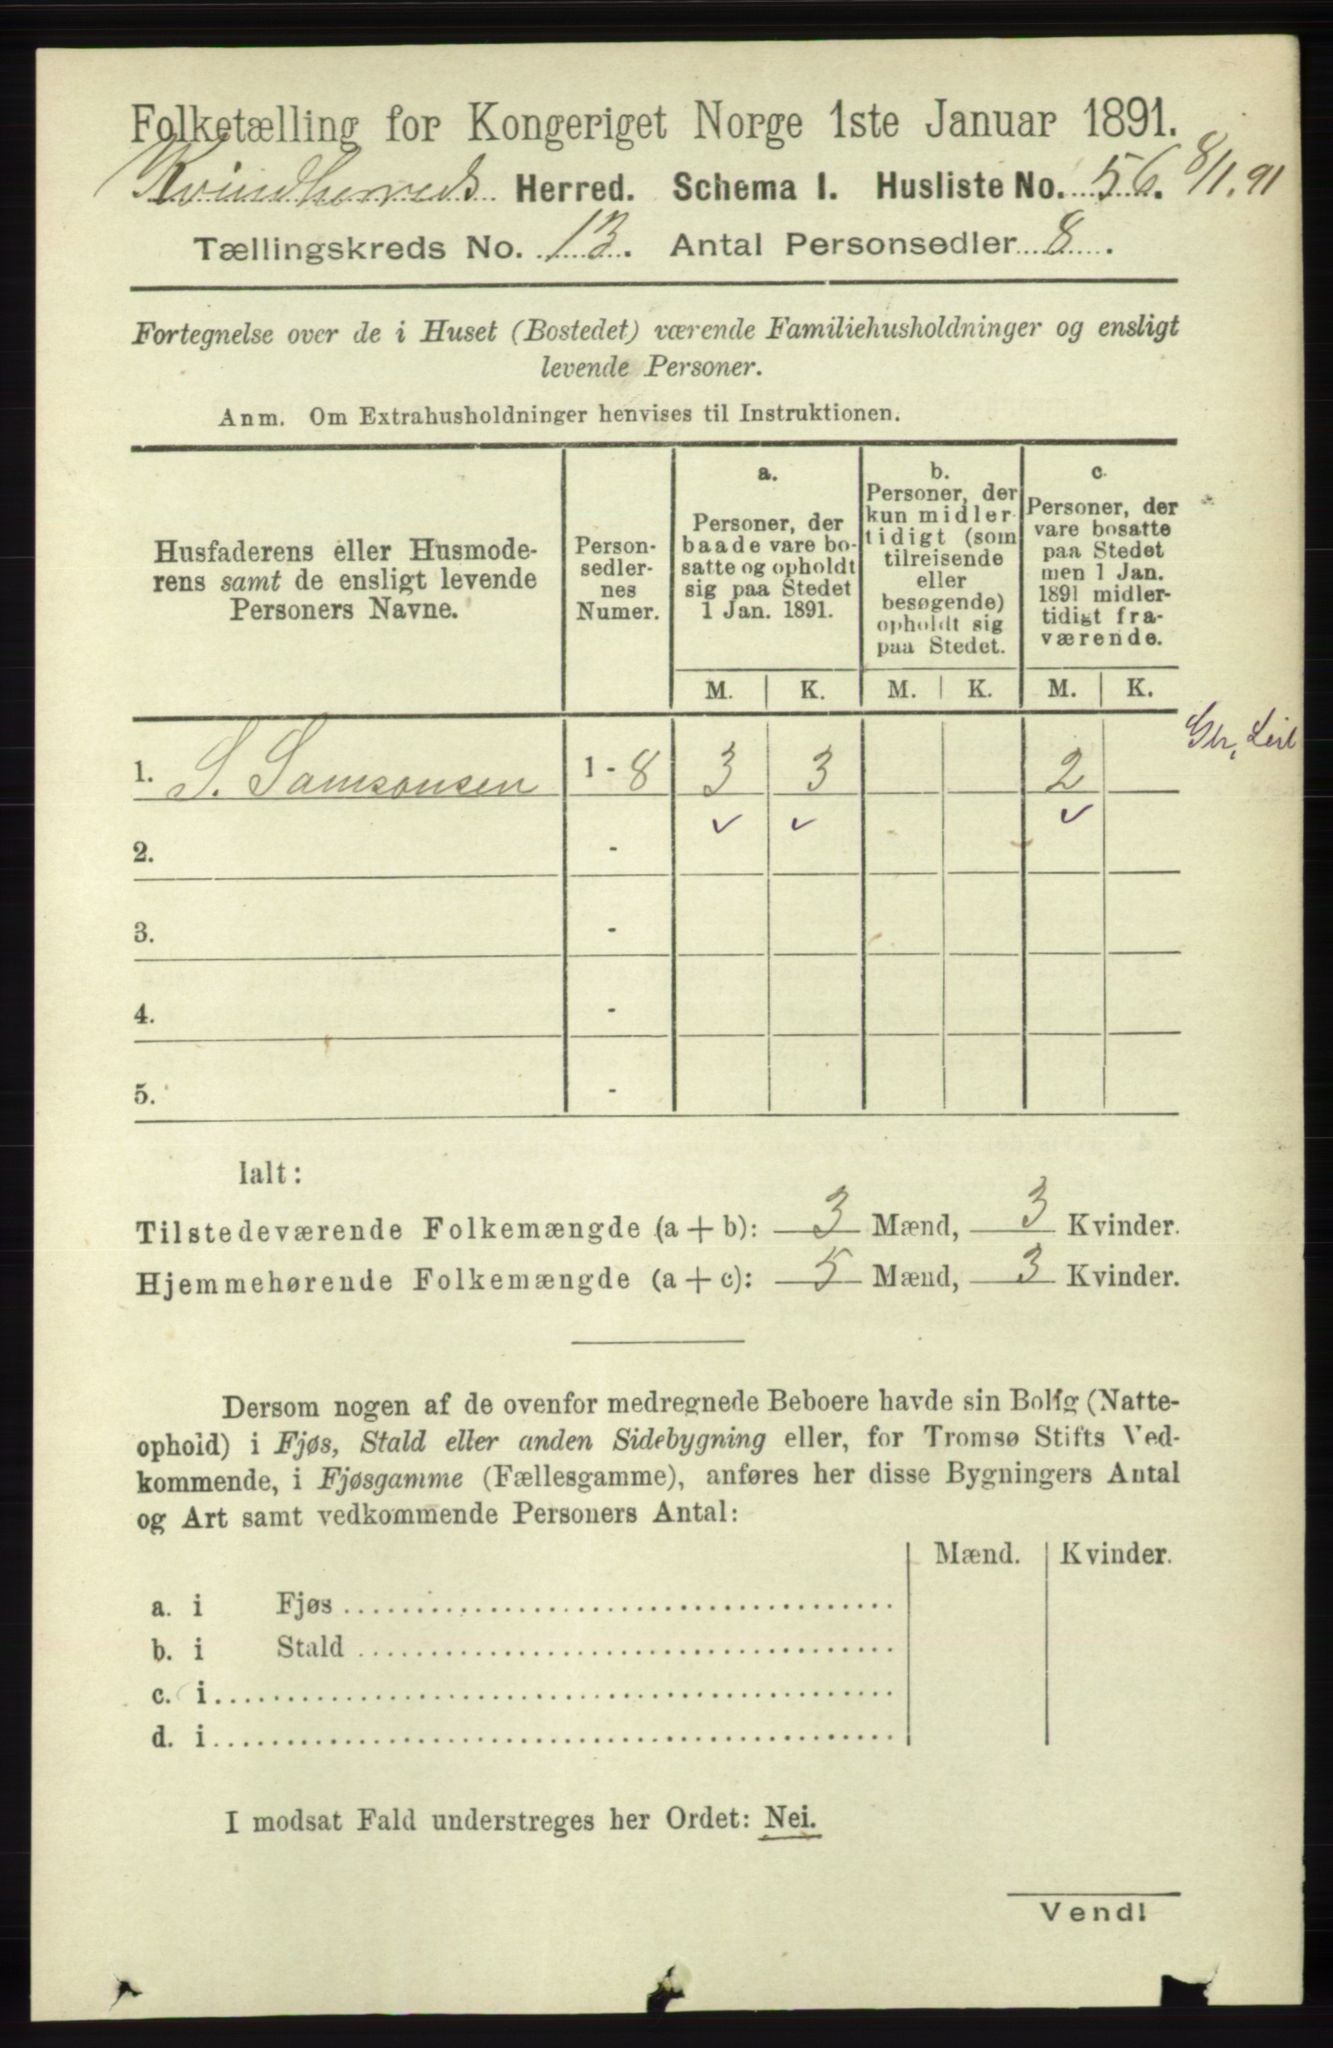 Folketælling for Kongeriget Norge 1ste Januar 1891.
Kvindherreds Herred. Schema I. Husliste No. 56. 8/1.91
Tællingskreds No. 13. Antal Personsedler 8.
Fortegnelse over de i Huset (Bostedet) værende Familiehusholdninger og ensligt
levende Personer.
Anm. Om Extrahusholdninger henvises til Instruktionen.
Husfaderens eller Husmode-
rens samt de ensligt levende
Personers Navne.
Person-
sedler-
nes
Numer.
a.
Personer, der
baade vare bo-
satte og opholdt
sig paa Stedet
1 Jan. 1891.
b.
Personer, der
kun midler-
tidigt (som
tilreisende
eller
besøgende)
opholdt sig
paa Stedet.
c
Personer, der
vare bosatte
paa Stedet
men 1 Jan.
1891 midler-
tidigt fra-
værende.
M. K. M. K. M. K.
1. S. Samsonsen 1 - 8 3 3 2
2. -
3. -
4. -
5. -
Ialt:
Tilstedeværende Folkemængde (a + b): 3 Mænd, 3 Kvinder.
Hjemmehørende Folkemængde (a + c): 5 Mænd, 3 Kvinder.
Dersom nogen af de ovenfor medregnede Beboere havde sin Bolig (Natte-
ophold) i Fjøs, Stald eller anden Sidebygning eller, for Tromsø Stifts Ved-
kommende, i Fjøsgamme (Fællesgamme), anføres her disse Bygningers Antal
og Art samt vedkommende Personers Antal:
Mænd. Kvinder.
a. i Fjøs
b. i Stald
c. i
d. i
I modsat Fald understreges her Ordet: Nei.
Vend!